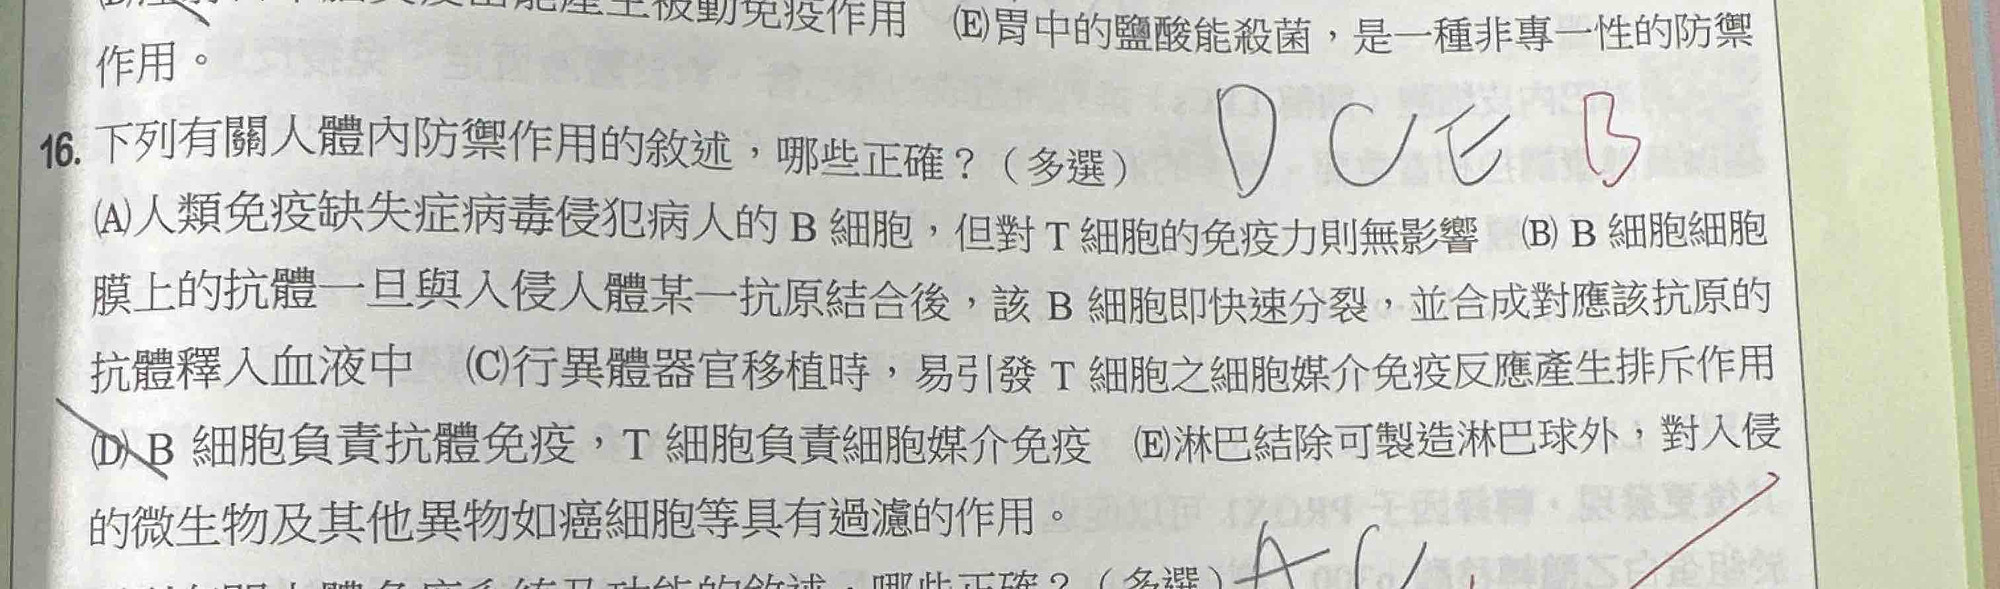 產生被動免疫作用 (E)胃中的鹽酸能殺菌，是一種非專一性的防禦
作用。
16. 下列有關人體內防禦作用的敘述，哪些正確？（多選） D C E B
(A)人類免疫缺失症病毒侵犯病人的 B 細胞，但對 T 細胞的免疫力則無影響 (B) B 細胞細胞
膜上的抗體一旦與入侵人體某一抗原結合後，該 B 細胞即快速分裂，並合成對應該抗原的
抗體釋入血液中 (C)行異體器官移植時，易引發 T 細胞之細胞媒介免疫反應產生排斥作用
(D) B 細胞負責抗體免疫，T 細胞負責細胞媒介免疫 (E)淋巴結除可製造淋巴球外，對入侵
的微生物及其他異物如癌細胞等具有過濾的作用。
哪些正確？（多選） A C